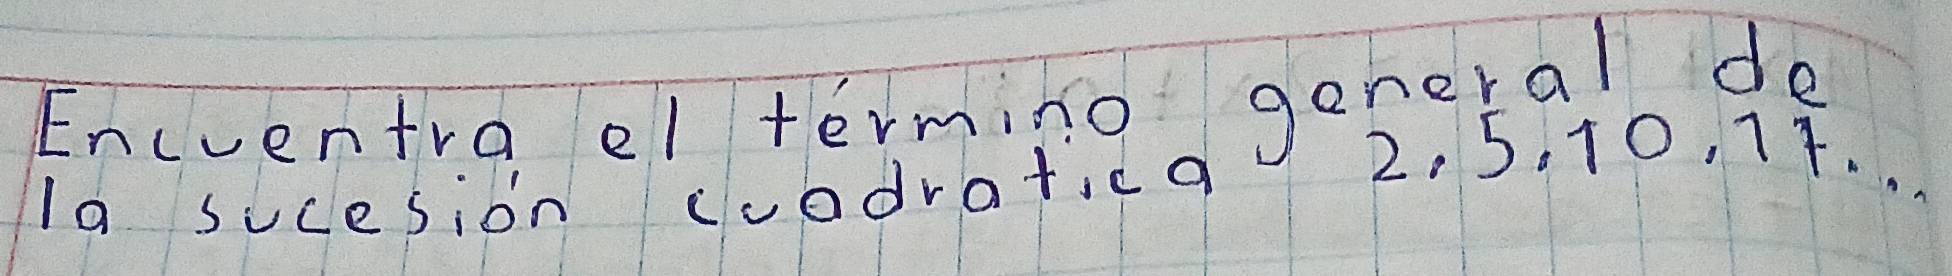 Encuentra el término general de
la sucesión cuadratica 2,5,10,17...